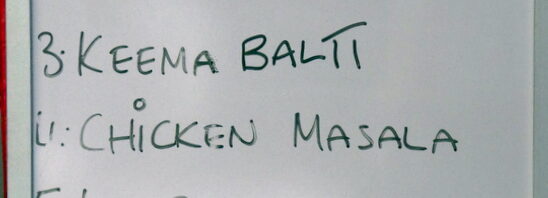 3. KEEMA BALTI
4: CHICKEN MASALA